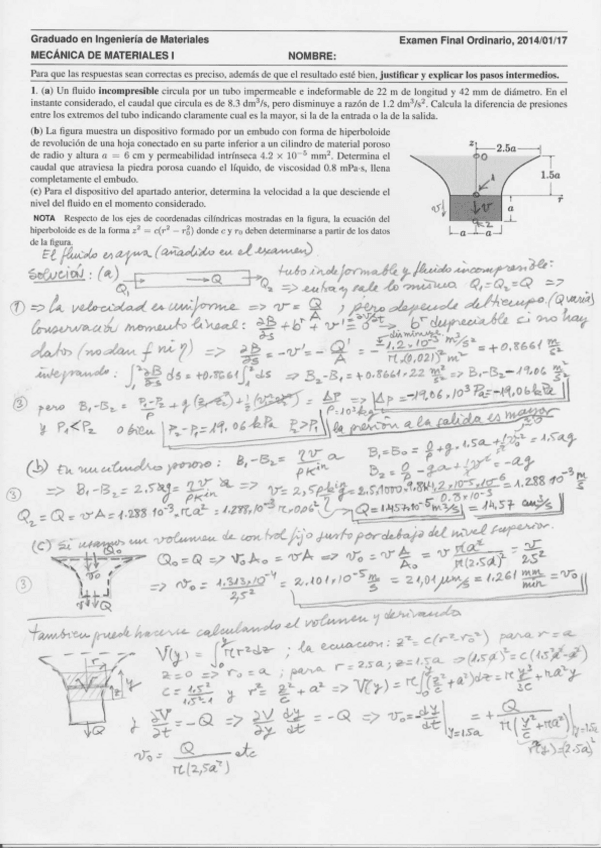 Graduado en Ingeniería de Materiales Examen Final Ordinario, 2014/01/17
MECÁNICA DE MATERIALES I NOMBRE:
Para que las respuestas sean correctas es preciso, además de que el resultado esté bien, justificar y explicar los pasos intermedios.
1. (a) Un fluido incompresible circula por un tubo impermeable e indeformable de 22 m de longitud y 42 mm de diámetro. En el
instante considerado, el caudal que circula es de 8.3 dm³/s, pero disminuye a razón de 1.2 dm³/s². Calcula la diferencia de presiones
entre los extremos del tubo indicando claramente cual es la mayor, si la de la entrada o la de la salida.
(b) La figura muestra un dispositivo formado por un embudo con forma de hiperboloide
de revolución de una hoja conectado en su parte inferior a un cilindro de material poroso
de radio y altura a = 6 cm y permeabilidad intrínseca 4.2 × 10⁻⁵ mm². Determina el
caudal que atraviesa la piedra porosa cuando el líquido, de viscosidad 0.8 mPa·s, llena
completamente el embudo.
(c) Para el dispositivo del apartado anterior, determina la velocidad a la que desciende el
nivel del fluido en el momento considerado.
NOTA Respecto de los ejes de coordenadas cilíndricas mostradas en la figura, la ecuación del
hiperboloide es de la forma z² = c(r² − r₀²) donde c y r₀ deben determinarse a partir de los datos
de la figura.
z 2.5a
0
1.5a
1 r
v a
2
a a
El fluido es agua (añadido en el examen)
Solución: (a) Q₁ → Q Q₂ tubo indeformable y fluido incompresible:
⇒ entra y sale lo mismo Q₁=Q₂=Q ⇒
⇒ la velocidad es uniforme ⇒ v = Q/A ; pero depende del tiempo (Q varía)
Conservación momento lineal: ∂B/∂s + bʳ + v' = 0 → bʳ despreciable si no hay
datos (no dan f ni η) ⇒ ∂B/∂s = −v' = −Q'/A = − 1.2×10⁻³ m³/s² / π(0,021)² m² = +0.8661 m/s²
integrando: ∫₁² ∂B/∂s ds = +0.8661 ∫₁² ds ⇒ B₂−B₁ = +0.8661·22 m²/s² ⇒ B₂−B₁ = 19.06 m²/s²
③ pero B₁−B₂ = P₁−P₂/ρ + g(z₁−z₂) + = ΔP/ρ ⇒ Δp = −19,06·10³ Pa = −19,06 kPa
ρ=10³ kg
y P₁<P₂ o bien P₂−P₁ = 19,06 kPa P₂>P₁ la presión a la salida es mayor
(b) En un cilindro poroso: B₁−B₂ = ηv/ρkⁱⁿ a B₁=B₀ = 0/ρ + g·1.5a + ½v₀² = 1.5ag
B₂ = 0/ρ − ga + ½v² = −ag
③ ⇒ B₁−B₂ = 2.5ag = ηv/ρkⁱⁿ a ⇒ v = 2,5ρkⁱⁿg/η = 1.288 10⁻³ m/s
Q₂ = Q = vA = 1.288 10⁻³·πa² = 1.288·10⁻³π0.06² Q = 1.457·10⁻⁵ m³/s = 14,57 cm³/s
(c) Si usamos un volumen de control fijo justo por debajo del nivel superior.
Q₀
v₀
v Q
Q₀ = Q ⇒ v₀A₀ = vA ⇒ v₀ = v A/A₀ = v πa²/π(2.5a)² = v/2.5²
③ ⇒ v₀ = 1.313×10⁻⁴/2,5² = 2.101·10⁻⁵ m/s = 21,01 μm/s = 1.261 mm/min = v₀
También puede hacerse calculando el volumen y derivando
V(y) = ∫₀ʸ πr²dz ; la ecuacion: z² = c(r²−r₀²) para r=a
z=0 ⇒ r₀=a ; para r=2.5a; z=1.5a ⇒ (1.5a)² = c(1.5²a²−a²)
c = 1.5²/1.5²−1 y r² = z²/c + a² ⇒ V(y) = π∫₀ʸ(z²/c + a²)dz = π y³/3c + πa²y
r z y
Q
y ∂V/∂t = −Q ⇒ ∂V/∂y dy/dt = −Q ⇒ v₀ = −dy/dt |y=1.5a = + Q / π(y²/c + πa²) |y=1.5a
r²(y) = (2.5a)²
v₀ = Q/π(2,5a²) etc